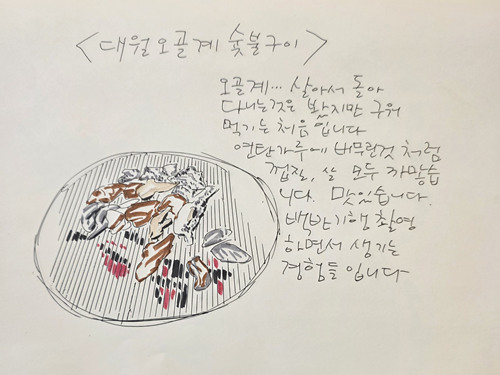 <대월오골계 숯불구이>
오골계... 살아서 돌아
다니는것은 봤지만 구워
먹기는 처음입니다
연탄가루에 버무린것 처럼
껍질, 살 모두 까맣습
니다. 맛있습니다.
백반기행 촬영
하면서 생기는
경험들입니다